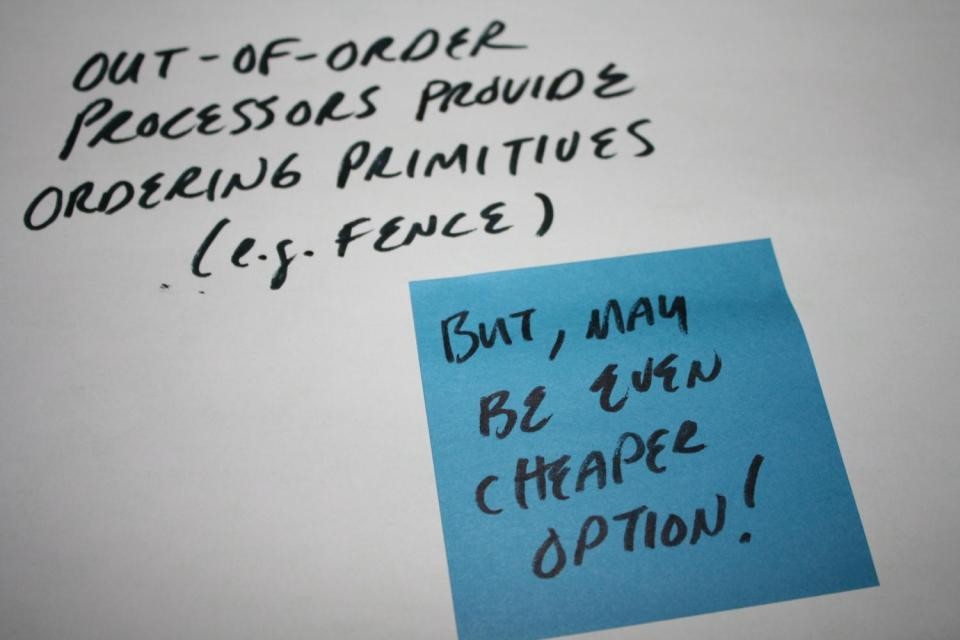 OUT-OF-ORDER
PROCESSORS PROVIDE
ORDERING PRIMITIVES
(e.g. FENCE)
BUT, MAY
BE EVEN
CHEAPER
OPTION!